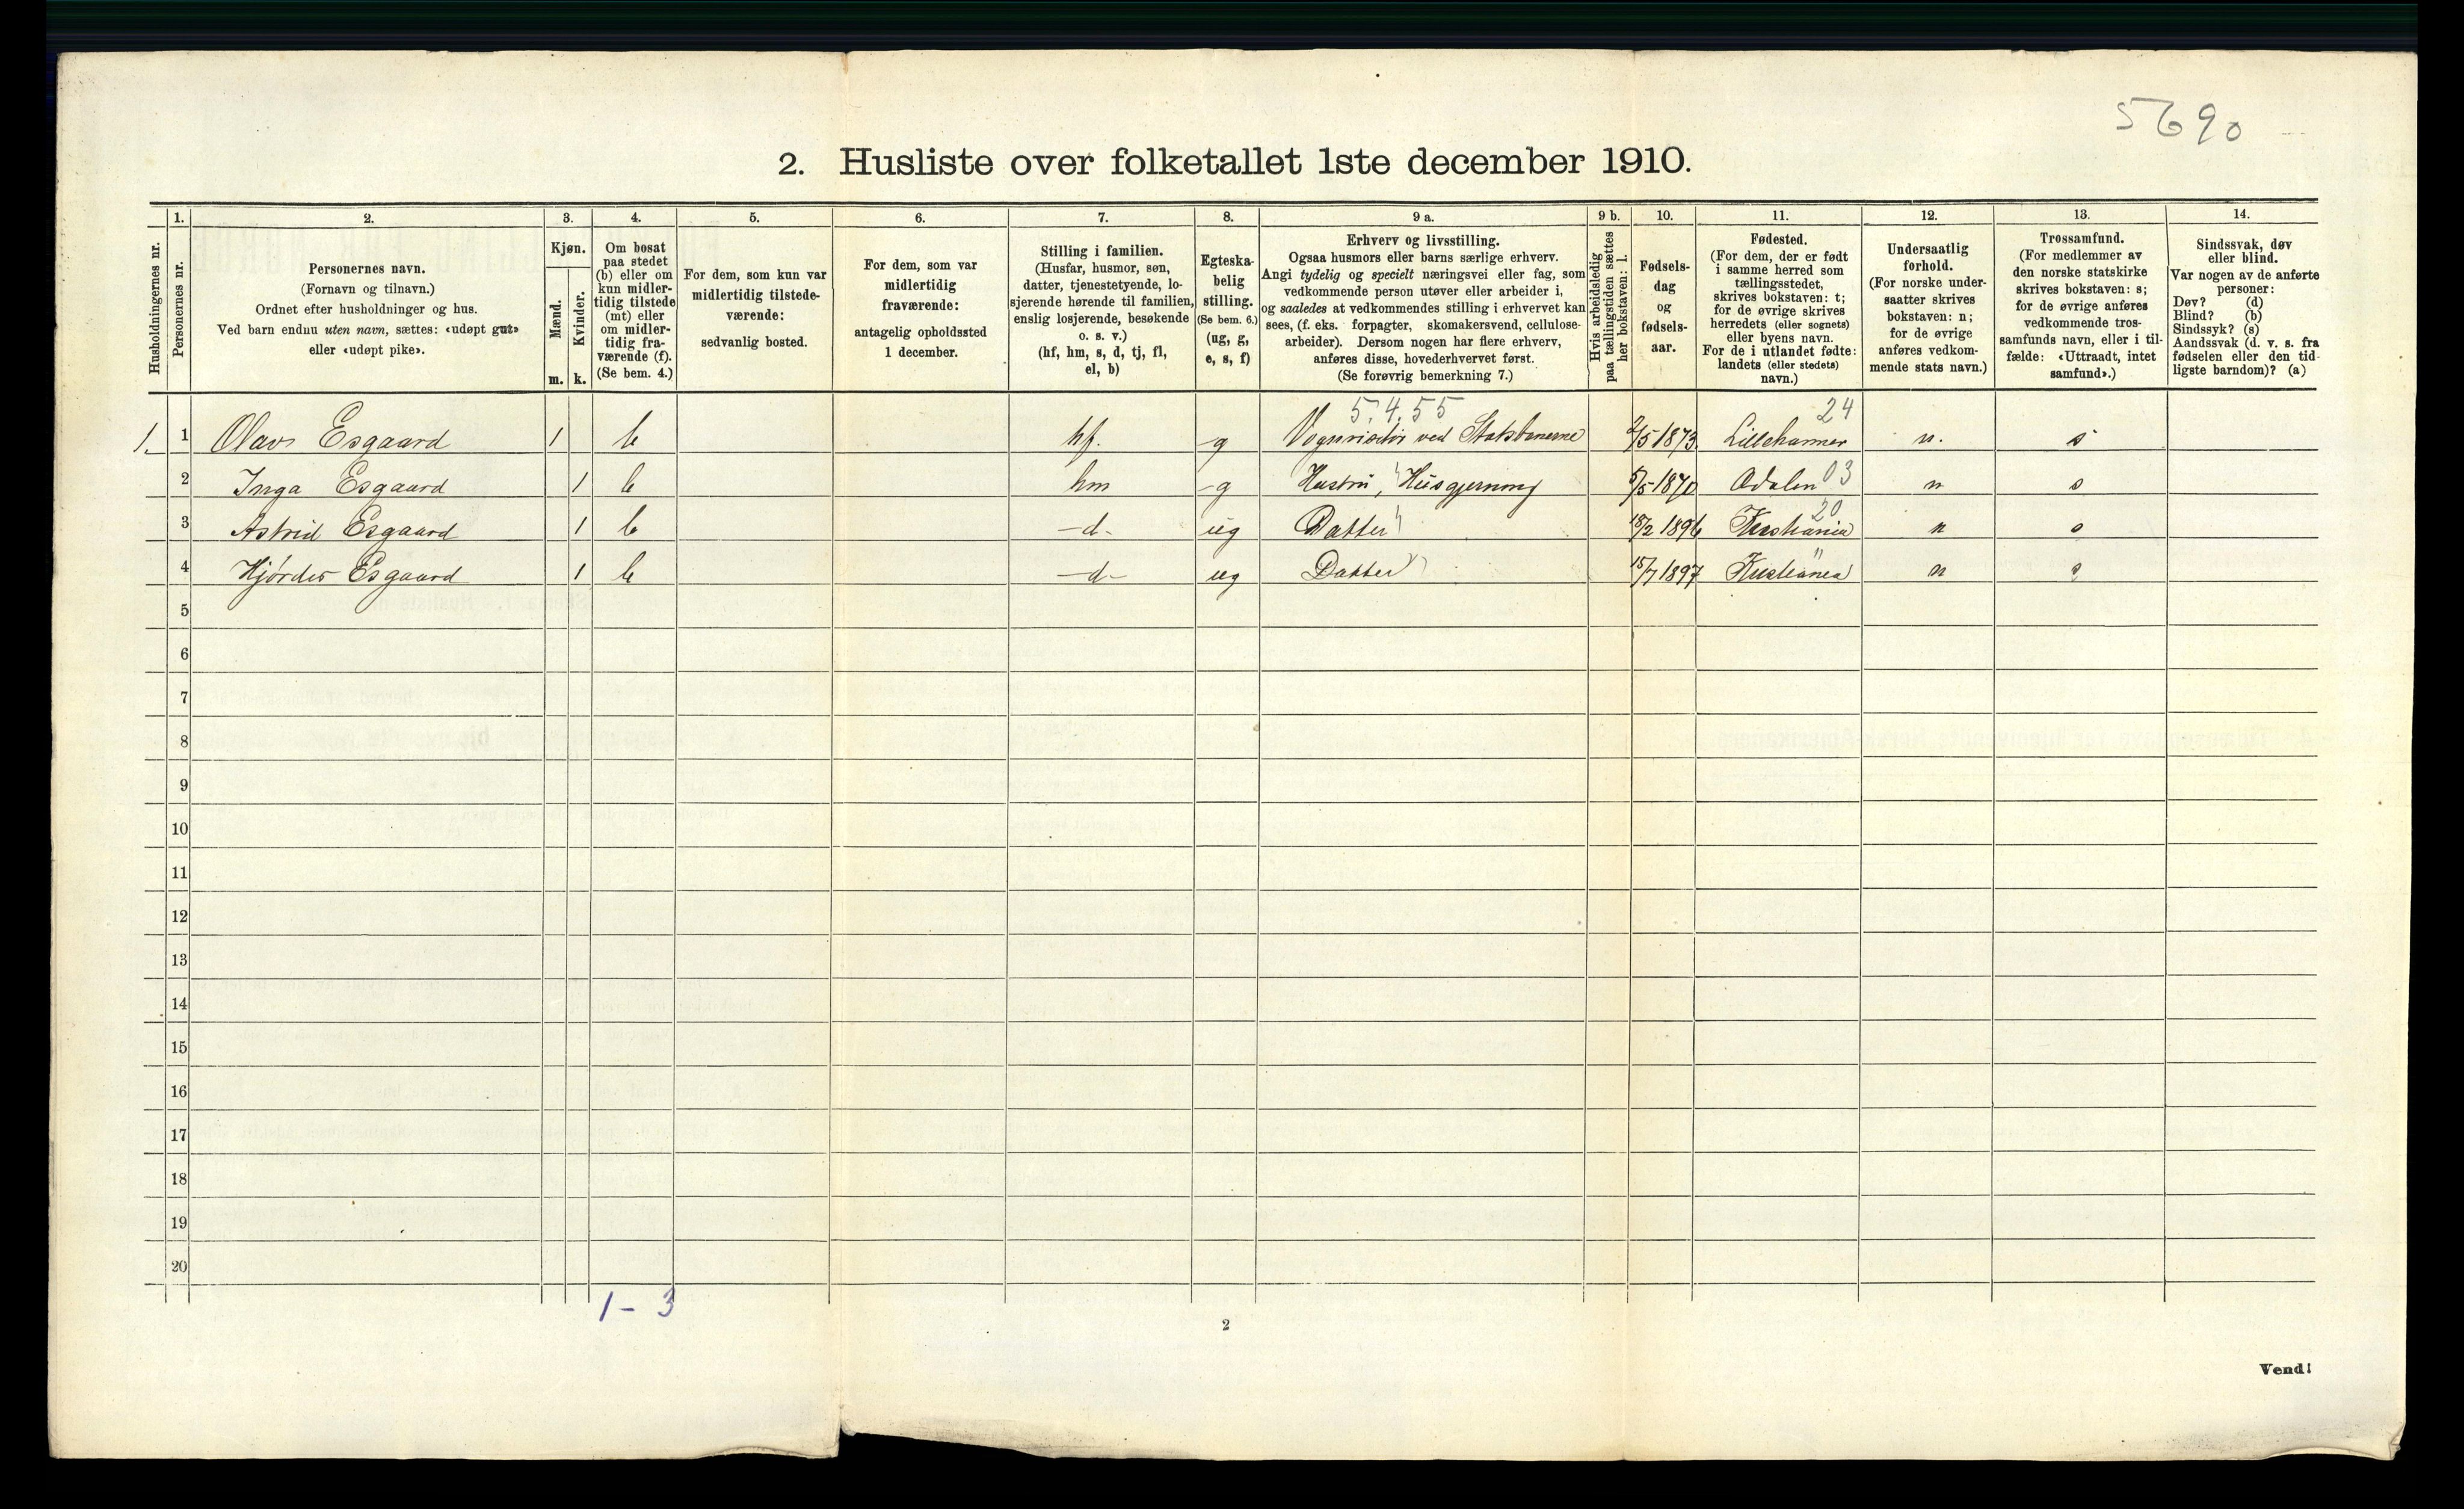 5690
2. Husliste over folketallet 1ste december 1910.
Husholdningernes nr.
1.
Personernes nr.
2.
Personernes navn.
(Fornavn og tilnavn.)
Ordnet efter husholdninger og hus.
Ved barn endnu uten navn, sættes: «udøpt gut»
eller «udøpt pike».
3.
Kjøn.
Mænd.
m.
Kvinder.
k.
4.
Om bosat
paa stedet
(b) eller om
kun midler-
tidig tilstede
(mt) eller
om midler-
tidig fra-
værende (f).
(Se bem. 4.)
5.
For dem, som kun var
midlertidig tilstede-
værende:
sedvanlig bosted.
6.
For dem, som var
midlertidig
fraværende:
antagelig opholdssted
1 december.
7.
Stilling i familien.
(Husfar, husmor, søn,
datter, tjenestetyende, lo-
sjerende hørende til familien,
enslig losjerende, besøkende
o. s. v.)
(hf, hm, s, d, tj, fl,
el, b)
8.
Egteska-
belig
stilling.
(Se bem. 6.)
(ug, g,
e, s, f)
9 a.
Erhverv og livsstilling.
Ogsaa husmors eller barns særlige erhverv.
Angi tydelig og specielt næringsvei eller fag, som
vedkommende person utøver eller arbeider i,
og saaledes at vedkommendes stilling i erhvervet kan
sees, (f. eks. forpagter, skomakersvend, cellulose-
arbeider). Dersom nogen har flere erhverv,
anføres disse, hovederhvervet først.
(Se forøvrig bemerkning 7.)
9 b.
Hvis arbeidsledig
paa tællingstiden sættes
her bokstaven: l.
10.
Fødsels-
dag
og
fødsels-
aar.
11.
Fødested.
(For dem, der er født
i samme herred som
tællingsstedet,
skrives bokstaven: t;
for de øvrige skrives
herredets (eller sognets)
eller byens navn.
For de i utlandet fødte:
landets (eller stedets)
navn.)
12.
Undersaatlig
forhold.
(For norske under-
saatter skrives
bokstaven: n;
for de øvrige
anføres vedkom-
mende stats navn.)
13.
Trossamfund.
(For medlemmer av
den norske statskirke
skrives bokstaven: s;
for de øvrige anføres
vedkommende tros-
samfunds navn, eller i til-
fælde: «Uttraadt, intet
samfund».)
14.
Sindssvak, døv
eller blind.
Var nogen av de anførte
personer:
Døv? (d)
Blind? (b)
Sindssyk? (s)
Aandssvak (d. v. s. fra
fødselen eller den tid-
ligste barndom)? (a)
5.4.55 24
1. 1 Olavs Esgaard 1 b hf. g Vognvisitör ved Statsbanerne 2/5 1873 Lillehammer n. s
2 Inga Esgaard 1 b hm g Hustru, Husgjerning 5/5 1870 Odalen 03 n s
20
3 Astrid Esgaard 1 b -d- ug Datter 18/2 1896 Kristiania n s
4 Hjørdis Esgaard 1 b -d- ug Datter 15/7 1897 Kristiania n s
5
6
7
8
9
10
11
12
13
14
15
16
17
18
19
20
1 - 3
2
Vend!